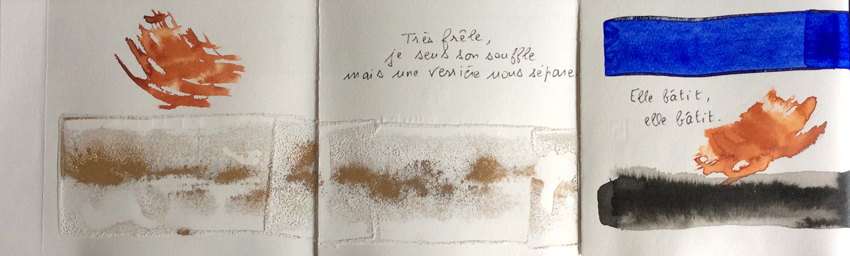 Très frêle,
je sens son souffle
mais une verrière nous sépare
Elle bâtit,
elle bâtit.